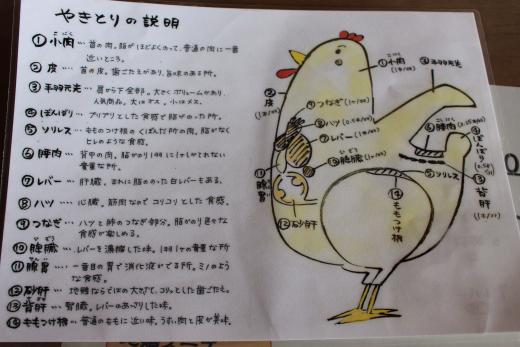 やきとりの説明
①小肉… 首の肉。脂がほどよくのって、普通の肉に一番
近いところ。
②皮… 首の皮。歯ごたえがあり、旨味のある所。
③手羽元先… 肩から下全部。大きくボリュームがあり、
人気商品。大はオス。小はメス。
④ぼんぼり… プリプリとした食感で脂がのった所。
⑤ソリレス… ももつけ根のくぼんだ所の肉。脂がなく
ヒレのような食感。
⑥膵肉… 背中の肉。脂がのり1羽に1本しかとれない
貴重な所。
⑦レバー… 肝臓。まれに脂ののった白レバーもある。
⑧ハツ… 心臓。筋肉なのでコリコリとした食感。
⑨つなぎ… ハツと肺のつなぎ部分。脂がのり色々な
食感が楽しめる。
⑩脾臓… レバーを濃縮した味。1羽1ヶの貴重な所
⑪腺胃… 一番目の胃で消化液がでる所。ミノのよう
な食感。
⑫砂肝… 地鶏ならではの大きさで、コリッとした歯ごたえ。
⑬背肝… 腎臓。レバーのあっさりした味。
⑭ももつけ根… 普通のももに近い味。うすい肉と皮が美味。
①小肉
②皮
③手羽元先
⑨つなぎ
⑧ハツ
⑦レバー
⑩脾臓
⑪腺胃
⑫砂肝
⑥膵肉
④ぼんぼり
⑤ソリレス
⑬背肝
⑭ももつけ根